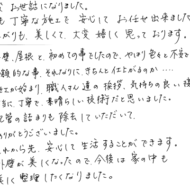 お世話になりました。
も丁寧な対応で安心してお任せ出来ました
がりも、美しくて、大変嬉しく思っております。
壁、屋根と初めての事でしたので、やはり色々と不安
的な事、それなりに、きちんと仕上がるか・・・
工が始まり、職人さん達の挨拶、気持ちの良い
に丁寧で、素晴らしい技術だと思いました。
配管の詰まりも除去していただいて、
りがとうございました。
れから先、安心して生活することができます。
外壁が美しくなったので今後は家の中も
しく整理したくなりました。